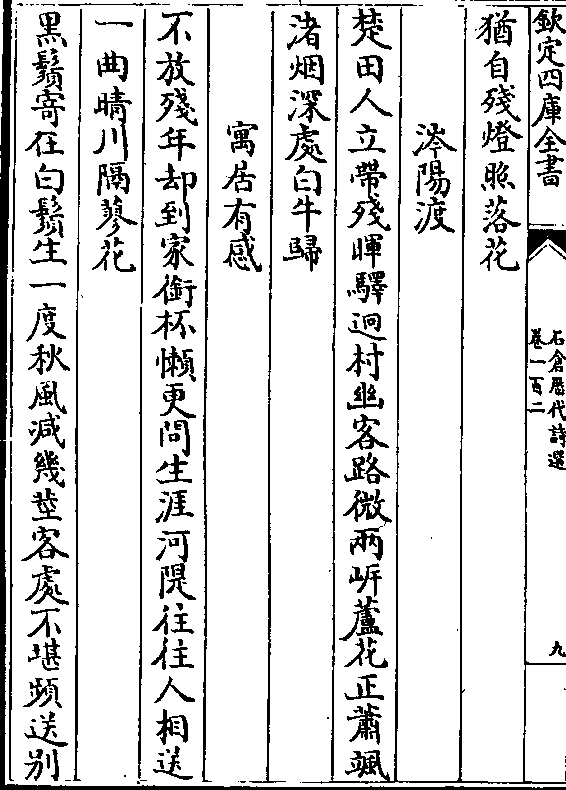 欽定四庫全書
石倉歷代詩選
卷一百二
九
猶自殘燈照落花
涔陽渡
楚田人立帶殘暉驛迥村幽客路微兩岍蘆花正蕭颯
渚烟深處白牛歸
寓居有感
不放殘年却到家銜杯懶更問生涯河隄往往人相送
一曲晴川隔蓼花
黑鬚寄在白鬚生一度秋風減幾莖客處不堪頻送別